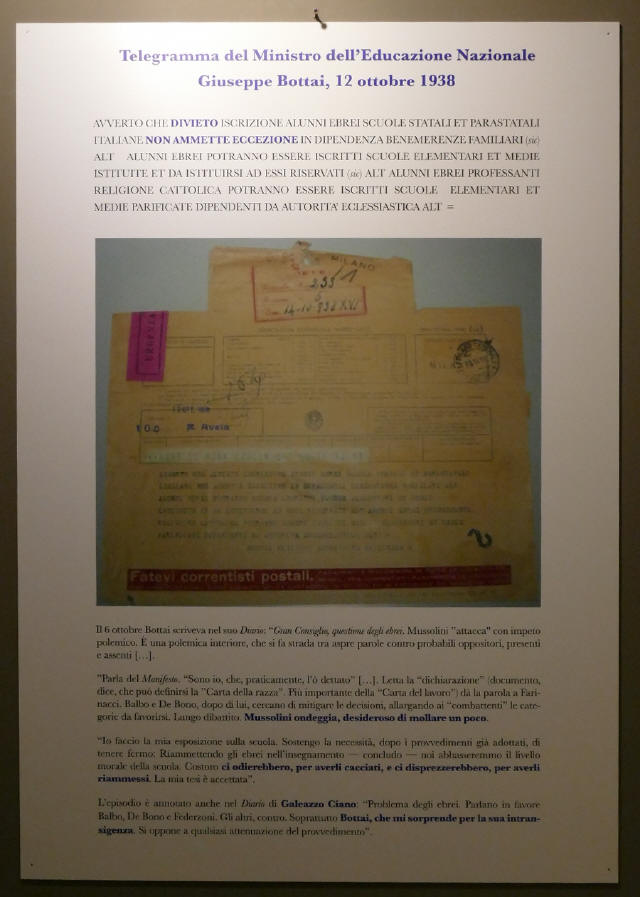 Telegramma del Ministro dell'Educazione Nazionale
Giuseppe Bottai, 12 ottobre 1938
AVVERTO CHE DIVIETO ISCRIZIONE ALUNNI EBREI SCUOLE STATALI ET PARASTATALI
ITALIANE NON AMMETTE ECCEZIONE IN DIPENDENZA BENEMERENZE FAMILIARI (sic)
ALT ALUNNI EBREI POTRANNO ESSERE ISCRITTI SCUOLE ELEMENTARI ET MEDIE
ISTITUITE ET DA ISTITUIRSI AD ESSI RISERVATI (sic) ALT ALUNNI EBREI PROFESSANTI
RELIGIONE CATTOLICA POTRANNO ESSERE ISCRITTI SCUOLE ELEMENTARI ET
MEDIE PARIFICATE DIPENDENTI DA AUTORITA' ECLESSIASTICA ALT =
MILANO
URGENZA
100 R Avela
Fatevi correntisti postali.
Il 6 ottobre Bottai scriveva nel suo Diario: "Gran Consiglio, questione degli ebrei. Mussolini "attacca" con impeto
polemico. È una polemica interiore, che si fa strada tra aspre parole contro probabili oppositori, presenti
e assenti [...].
"Parla del Manifesto. "Sono io, che, praticamente, l'ò dettato" [...]. Letta la "dichiarazione" (documento,
dice, che può definirsi la "Carta della razza". Più importante della "Carta del lavoro") dà la parola a Fari-
nacci. Balbo e De Bono, dopo di lui, cercano di mitigare le decisioni, allargando ai "combattenti" le cate-
gorie da favorirsi. Lungo dibattito. Mussolini ondeggia, desideroso di mollare un poco.
"Io faccio la mia esposizione sulla scuola. Sostengo la necessità, dopo i provvedimenti già adottati, di
tenere fermo: Riammettendo gli ebrei nell'insegnamento — concludo — noi abbasseremmo il livello
morale della scuola. Costoro ci odierebbero, per averli cacciati, e ci disprezzerebbero, per averli
riammessi. La mia tesi è accettata".
L'episodio è annotato anche nel Diario di Galeazzo Ciano: "Problema degli ebrei. Parlano in favore
Balbo, De Bono e Federzoni. Gli altri, contro. Soprattutto Bottai, che mi sorprende per la sua intran-
sigenza. Si oppone a qualsiasi attenuazione del provvedimento".